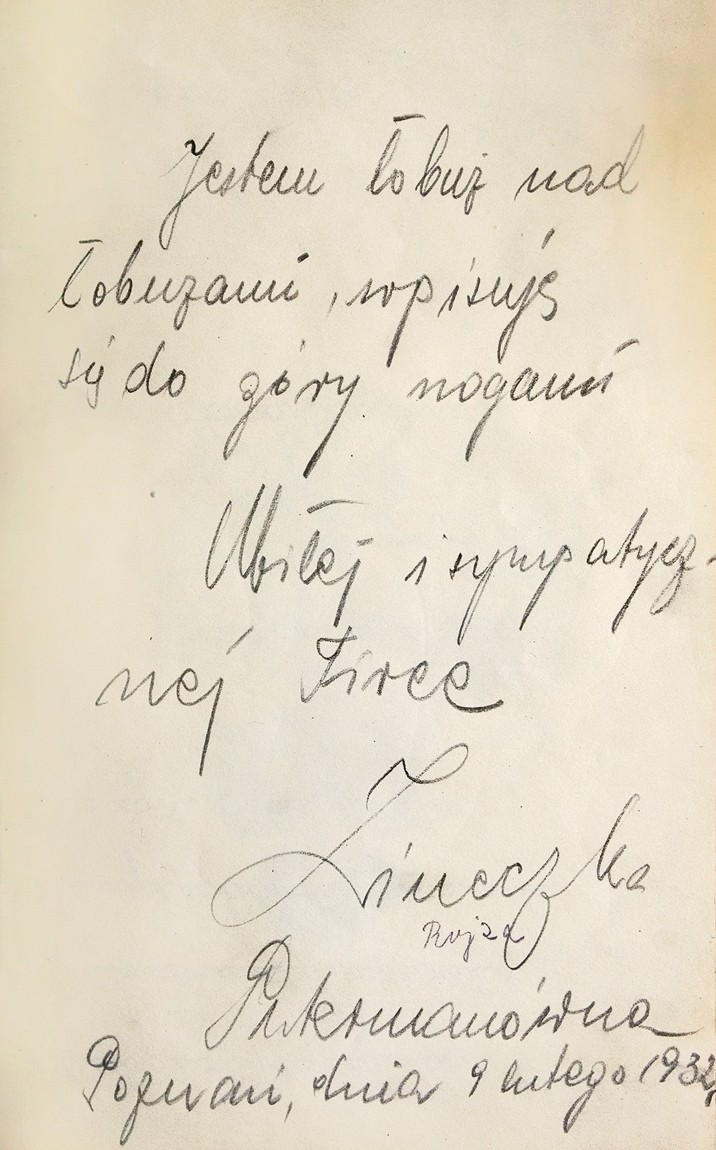 Jestem łobuz nad
łobuzami, wpisuję
się do góry nogami
Miłej i sympatycz-
nej Firce
Lineczka
Rojza
Pukermanówna
Poznań, dnia 9 lutego 1932